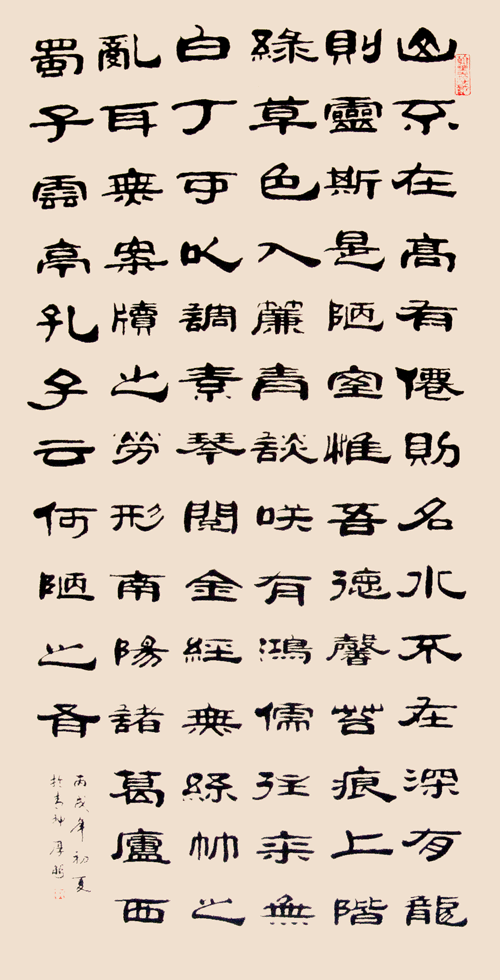 山不在高有僊則名水不在深有龍
則靈斯是陋室惟吾德馨苔痕上階
綠草色入簾青談咲有鴻儒往来無
白丁可以調素琴閱金經無絲竹之
亂耳無案牘之勞形南陽諸葛廬西
蜀子雲亭孔子云何陋之有
丙戌年初夏
於青神